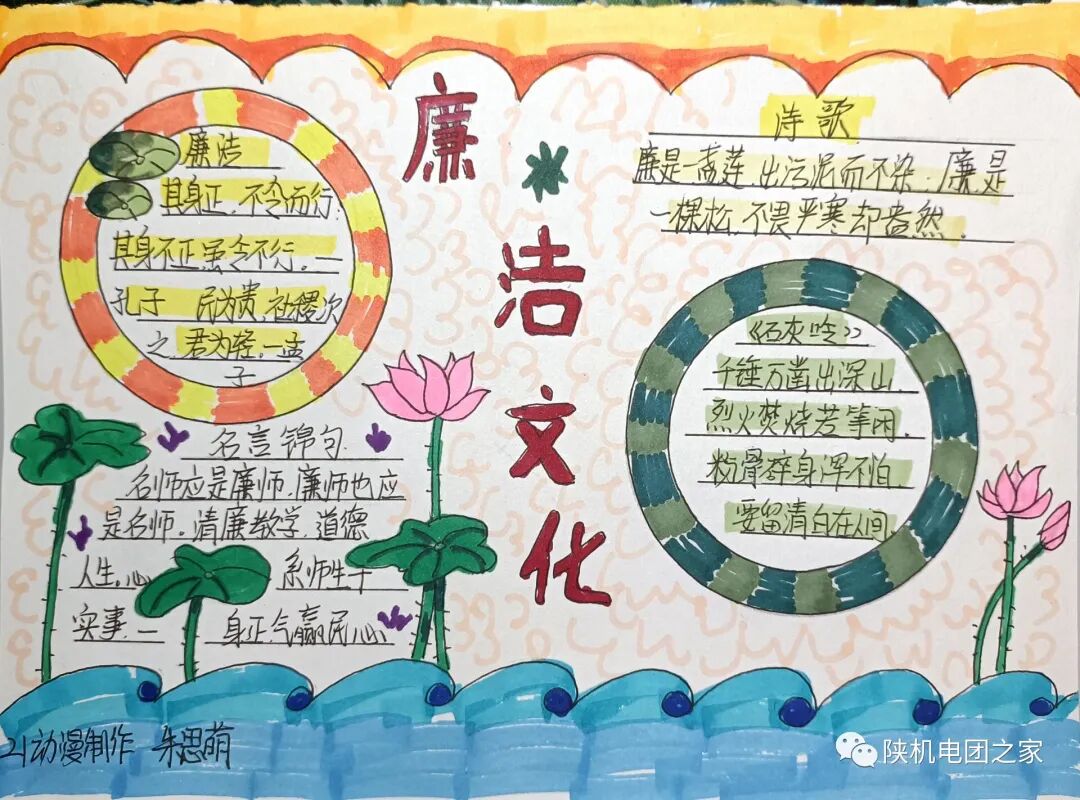 廉洁文化
廉洁
其身正，不令而行；
其身不正，虽令不行。一
孔子 民为贵，社稷次
之 君为轻。一孟
子
名言锦句
名师应是廉师，廉师也应
是名师。清廉教学，道德
人生。心 系师生干
实事。一 身正气赢民心
诗歌
廉是一盏莲，出污泥而不染；廉是
一棵松，不畏严寒却盎然。
《石灰吟》
千锤万凿出深山，
烈火焚烧若等闲，
粉骨碎身浑不怕
要留清白在人间
21动漫制作 朱思萌
陕机电团之家